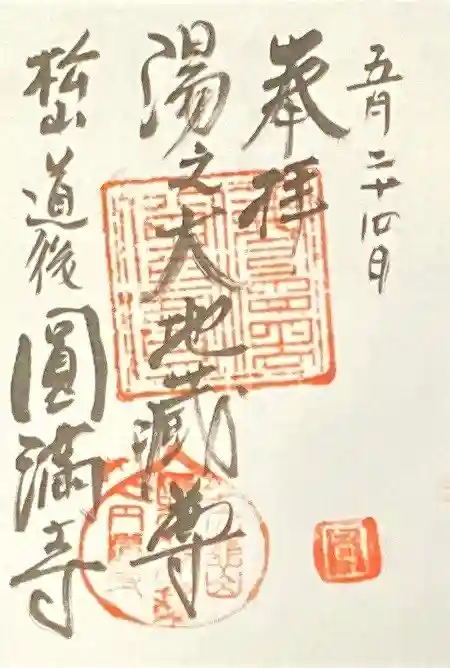 五月二十四日
奉拝
湯之大地蔵尊
松山 道後 圓満寺